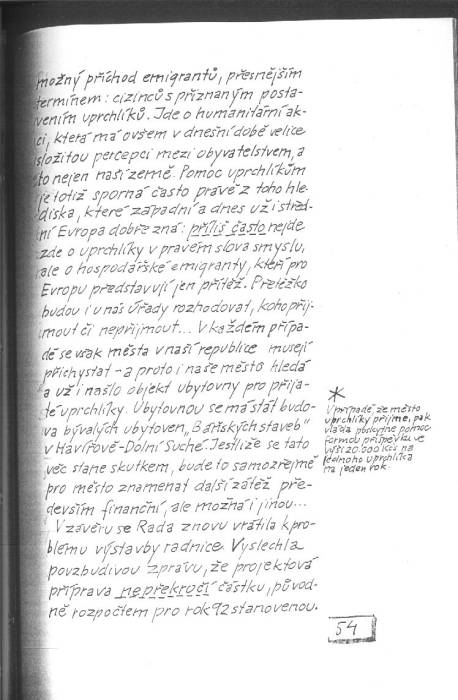 možný příchod emigrantů, přesnějším
termínem: cizinců s přiznaným posta-
vením uprchlíků. Jde o humanitární ak-
ci, která má ovšem v dnešní době velice
složitou percepci mezi obyvatelstvem, a
to nejen naší země. Pomoc uprchlíkům
je totiž sporná často právě z toho hle-
diska, které západní a dnes už i střed-
ní Evropa dobře zná: příliš často nejde
zde o uprchlíky v pravém slova smyslu,
ale o hospodářské emigranty, kteří pro
Evropu představují jen přítěž. Přetěžko
budou i u nás úřady rozhodovat, koho přij-
mout či nepřijmout... V každém přípa-
dě se však města v naší republice musejí
přichystat - a proto i naše město hledá
a už i našlo objekt ubytovny pro přija-
té uprchlíky. Ubytovnou se má stát budo-
va bývalých ubytoven „Báňských staveb"
v Havířově-Dolní Suché. Jestliže se tato
věc stane skutkem, bude to samozřejmě
pro město znamenat další zátěž pře-
devším finanční, ale možná i jinou...
V závěru se Rada znovu vrátila k pro-
blému výstavby radnice. Vyslechla
povzbudivou zprávu, že projektová
příprava nepřekročí částku, původ-
ně rozpočtem pro rok 92 stanovenou.
*
V případě že město
uprchlíky přijme, pak
vláda poskytne pomoc
formou příspěvku ve
výši 20.000 Kčs na
jednoho uprchlíka
na jeden rok.
54